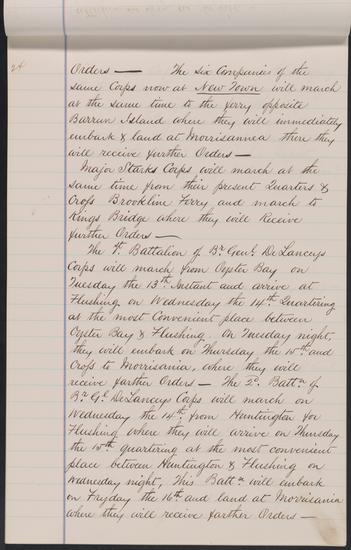 24
Orders — The six Companies of the
same Corps now at New Town will march
at the same time to the ferry opposite
Barrun Island where they will immediately
embark & land at Morrisannea there they
will receive further Orders —
Major Starks Corps will march at the
same time from their present Quarters &
Cross Brookline Ferry, and march to
Kings Bridge where they will Receive
further Orders —
The 1st. Battalion of Br. Genl. DeLanceys
Corps will march from Oyster Bay on
Tuesday the 13th. Instant and arrive at
Flushing on Wednesday the 14th. Quartering
at the most Convenient place between
Oyster Bay & Flushing on Tuesday night,
they will embark on Thursday the 15th. and
Cross to Morrisania, where they will
receive farther Orders — The 2d. Battn. of
Br. Gl. DeLanceys Corps will march on
Wednesday the 14th. from Huntington for
Flushing where they will arrive on Thursday
the 15th. quartering at the most convenient
place between Huntington & Flushing on
Wednesday night, This Battn. will embark
on Fryday the 16th and land at Morrisania
where they will receive farther Orders —